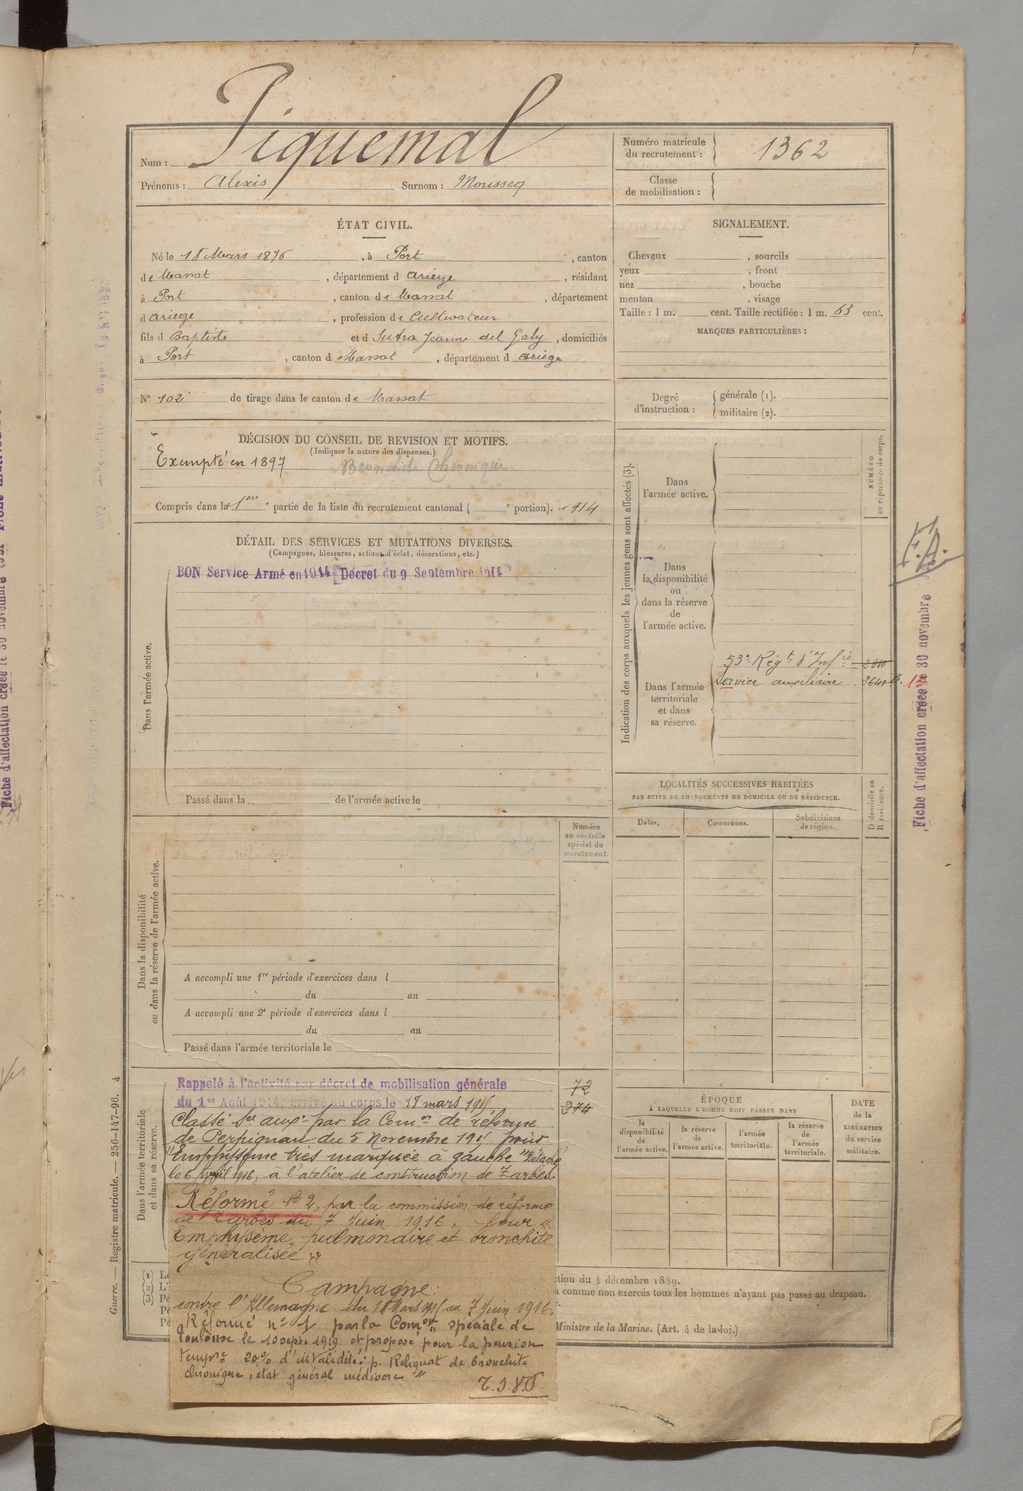 Nom : Piquemal
Prénoms : Alexis Surnom : Mousseq
Numéro matricule du recrutement : 1362
Classe de mobilisation :
ÉTAT CIVIL.
Né le 18 Mars 1876, à Port, canton
de Massat, département d Ariège, résidant
à Port, canton de Massat, département
d Ariège, profession de Cultivateur
fils d Baptiste et d Sutra Jeanne del Galy, domiciliés
à Port, canton de Massat, département d Ariège
N° 102 de tirage dans le canton de Massat
SIGNALEMENT.
Cheveux , sourcils
yeux , front
nez , bouche
menton , visage
Taille : 1 m. cent. Taille rectifiée : 1 m. 63 cent.
MARQUES PARTICULIÈRES :
Degré d'instruction : générale (1). militaire (2).
DÉCISION DU CONSEIL DE REVISION ET MOTIFS.
(Indiquer la nature des dispenses.)
Exempté en 1897 Bronchite Chronique
Compris dans la 1ère partie de la liste du recrutement cantonal ( e portion). 1914
DÉTAIL DES SERVICES ET MUTATIONS DIVERSES.
(Campagnes, blessures, actions d'éclat, décorations, etc.)
BON Service Armé en 1914 Décret du 9 Septembre 1914
Dans l'armée active.
Passé dans la de l'armée active le
Indication des corps auxquels les jeunes gens sont affectés (3).
NUMÉRO au répertoire du corps.
Dans l'armée active.
Dans la disponibilité ou dans la réserve de l'armée active.
Dans l'armée territoriale et dans sa réserve.
53e Régt d'Infie
Service auxiliaire
F.A.
Fiche d'affectation créée le 30 novembre
LOCALITÉS SUCCESSIVES HABITÉES
PAR SUITE DE CHANGEMENTS DE DOMICILE OU DE RÉSIDENCE.
Dates. Communes. Subdivisions de région. D domicile ou R résidence.
Numéro au contrôle spécial du recrutement.
Dans la disponibilité ou dans la réserve de l'armée active.
A accompli une 1re période d'exercices dans l
du au
A accompli une 2e période d'exercices dans l
du au
Passé dans l'armée territoriale le
Dans l'armée territoriale et dans sa réserve.
Rappelé à l'activité par décret de mobilisation générale
du 1er Août 1914, arrivé au corps le 18 mars 1915
72
374
Classé Sce auxre par la Comon de réforme
de Perpignan du 5 Novembre 1915 pour
"Emphysème très marquée à gauche" Détaché
le 6 Avril 1916, à l'atelier de construction de Tarbes.
Réformé N° 2, par la commission de réforme
de Tarbes du 7 Juin 1916, pour "
Emphysème pulmonaire et bronchite
généralisée"
Campagne :
contre l'Allemagne du 18 Mars 1915 au 7 Juin 1916
Réformé n° 1 par la Comon spéciale de
Toulouse le 10 sept 1919 et proposé pour la pension
tempre 20% d'invalidité : p. Reliquat de bronchite
chronique, état général médiocre "
ÉPOQUE
À LAQUELLE L'HOMME DOIT PASSER DANS
la disponibilité de l'armée active. la réserve de l'armée active. l'armée territoriale. la réserve de l'armée territoriale.
DATE de la LIBÉRATION du service militaire.
ction du 4 décembre 1889.
à comme non exercés tous les hommes n'ayant pas passé au drapeau.
Ministre de la Marine. (Art. 4 de la loi.)
Guerre. — Registre matricule. — 256-147-96. 4